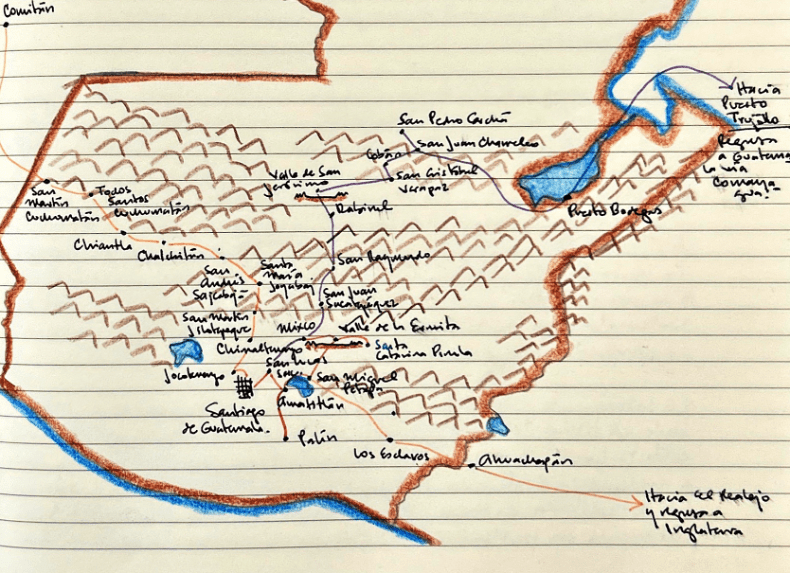 Comitán
Hacia
Puerto
Trujillo
Regresa
a Guatema
la vía
Comaya
gua
San Pedro Carchá
San Juan Chamelco
Cobán
San Cristóbal
Verapaz
Valle de San
Jerónimo
Rabinal
Puerto Bodegas
San
Martín
Cuchumatán
Todos
Santos
Cuchumatán
Chiantla
Chalchitán
San
Andrés
Sajcabajá
Santa
María
Joyabaj
San Raymundo
San Juan
Sacatepéquez
San Martín
Jilotepeque
Mixco
Valle de la Ermita
Chimaltenango
Santa
Catarina Pinula
San Lucas
Jocotenango
San Miguel
Petapa
Amatitlán
Santiago
de Guatemala
Palín
Los Esclavos
Ahuachapán
Hacia El Realejo
y regresa a
Inglaterra